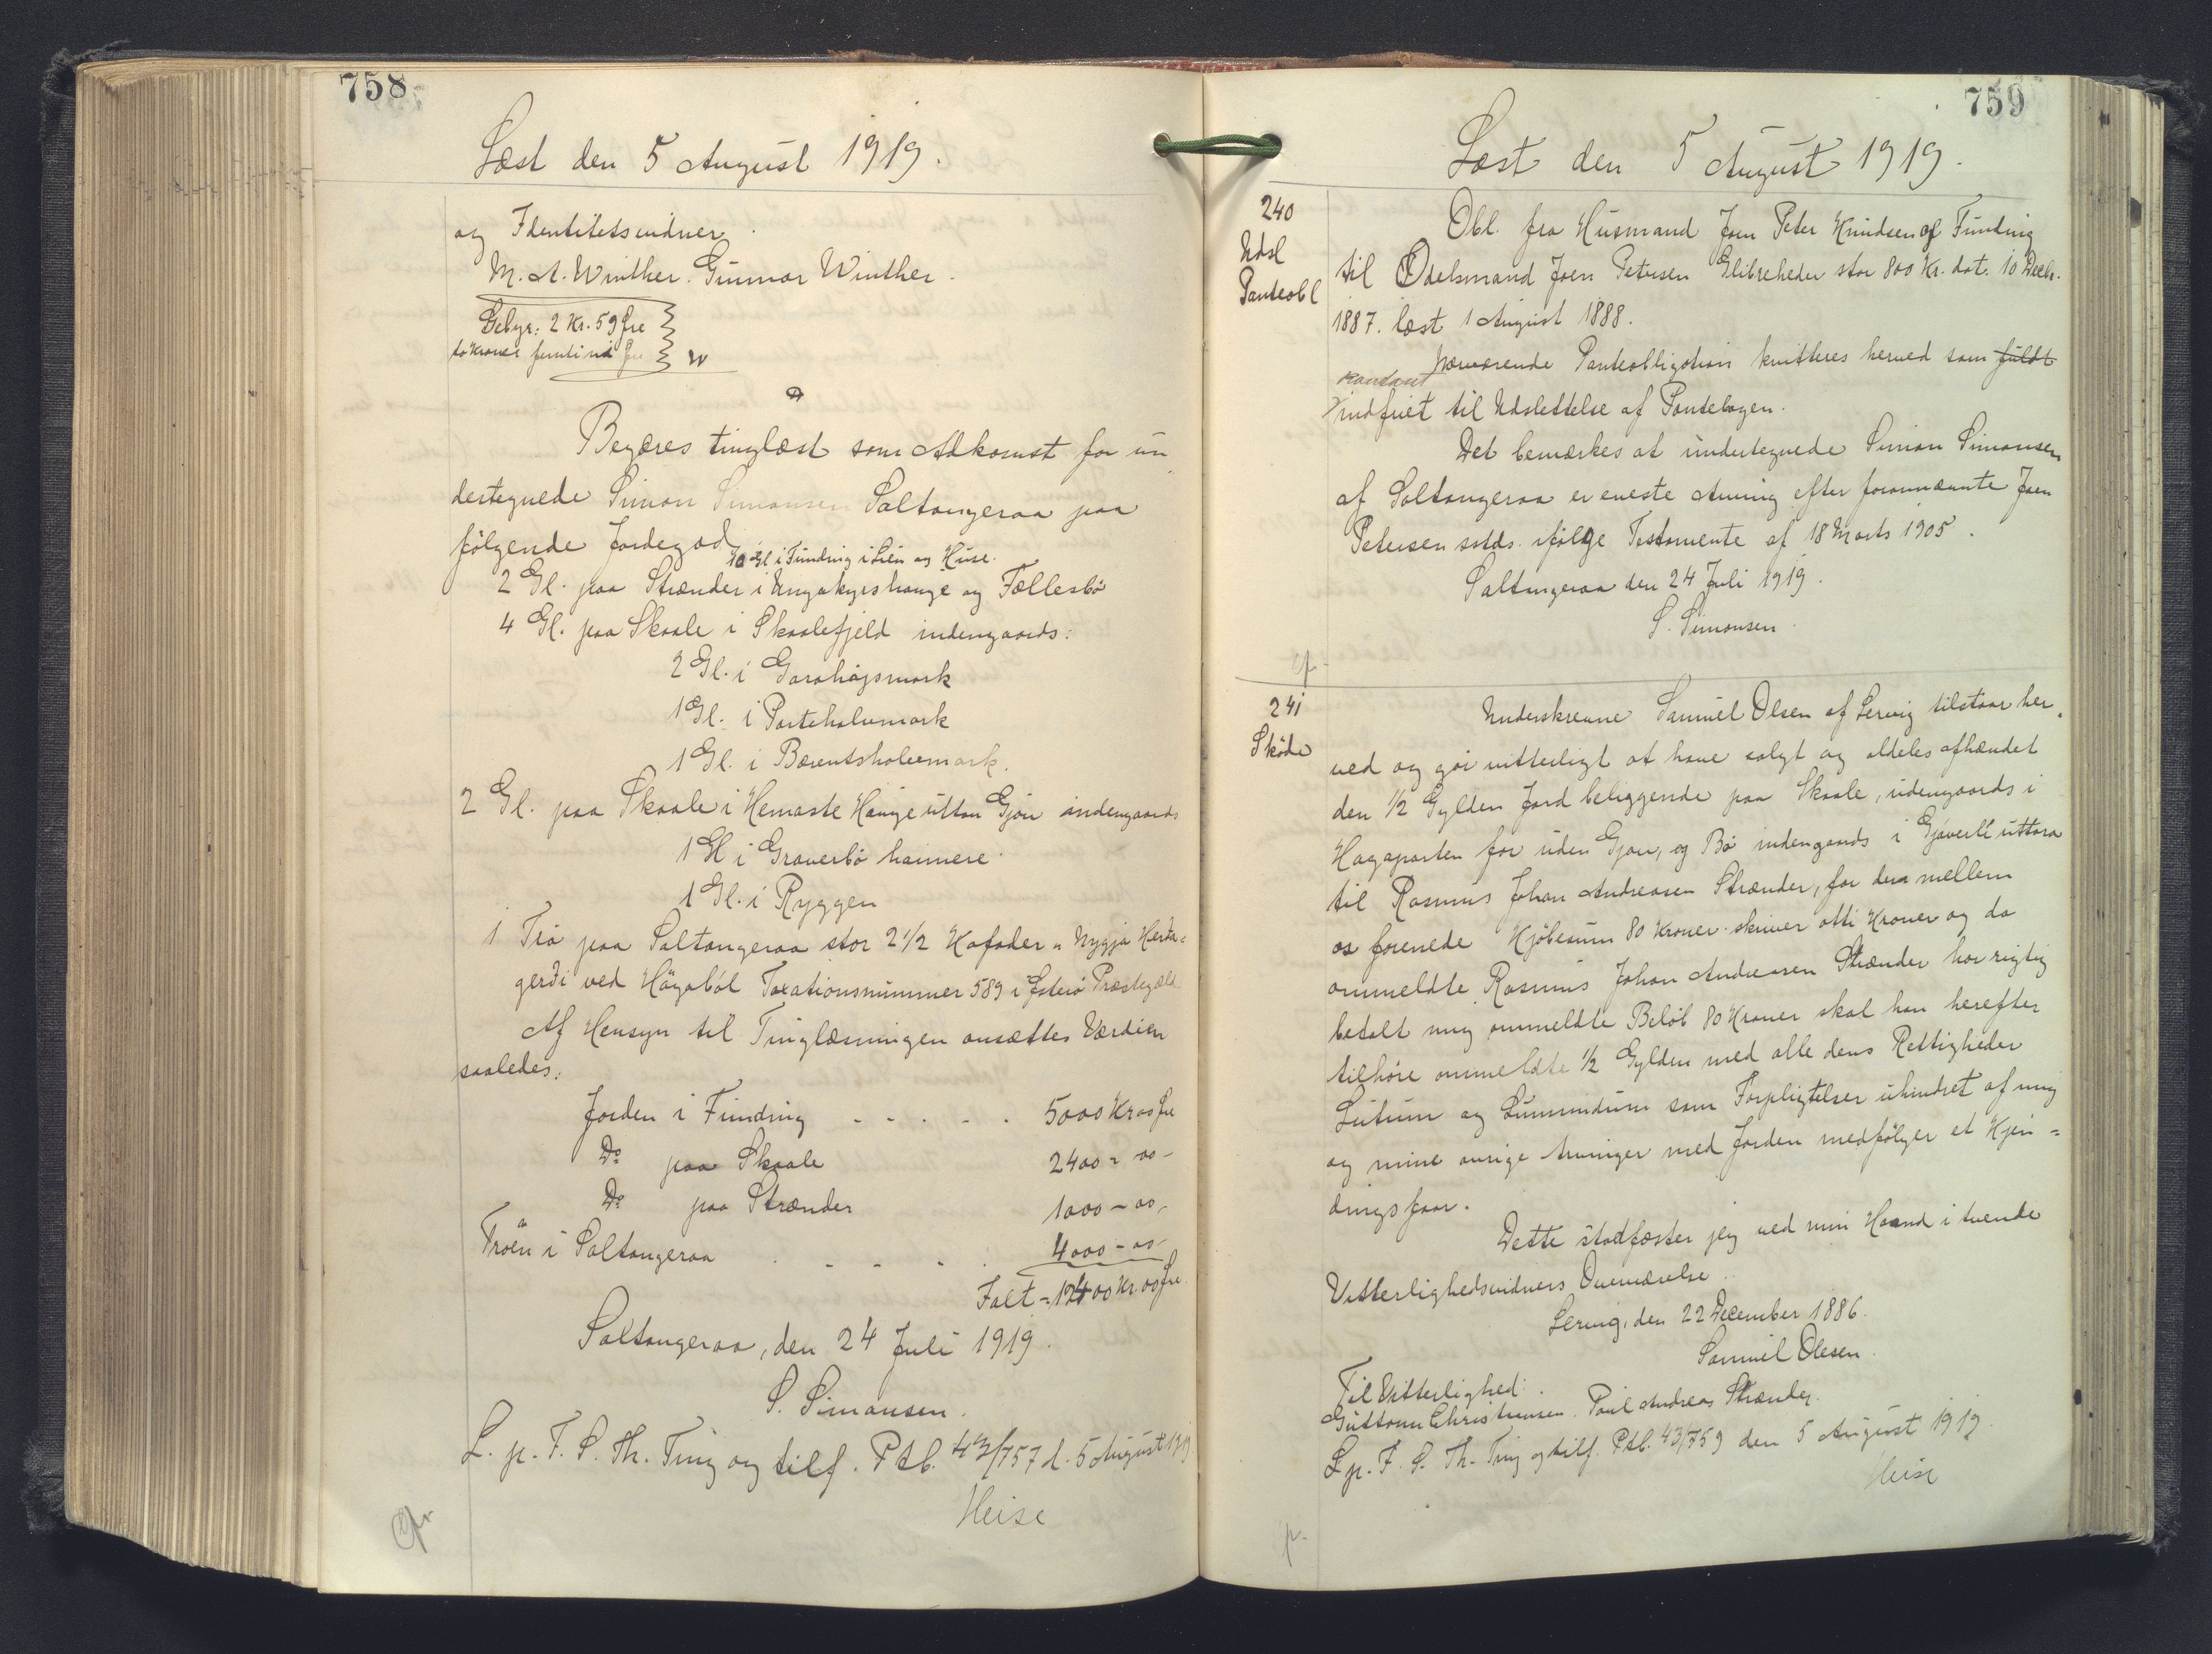 758
Læst den 5 August 1919.
og Identitetsvidner.
M. A. Winther. Gunnar Winther.
Gebyr: 2 Kr. 59 Øre
to Kroner femti ni Øre W
Begæres tinglæst som Adkomst for un
dertegnede Simon Simonsen Saltangeraa paa
følgende Jordegod
10 Gl i Funding i Lien og Huse.
2 Gl. paa Strænder i Unyakyrshauge og Fællesbø
4 Gl. paa Skaale i Skaalefjeld indengaards:
2 Gl. i Garahøjsmark
1 Gl. i Portehalvmark
1 Gl. i Bærentsholvemark.
2 Gl. paa Skaale i Hemaste Hauge uttan Gjov indengaards
1 Gl i Graverbø hannere
1 Gl. i Ryggen
1 Trø paa Saltangeraa stor 2 1/2 Kafoder a Nygja Herta=
gerði ved Høgaból Taxationsnummer 589 i Østerø Præstegæld
Af Hensyn til Tinglæsningen ansættes Værdien
saaledes:
Jorden i Funding - - - - - 5000 Kr 00 Øre
Do paa Skaale 2400 - 00 -
Do paa Strænder 1000 - 00 -
Trøen i Saltangeraa . - - - . 4000 - 00 -
Ialt = 12400 Kr. 00 Øre
Saltangeraa, den 24 Juli 1919.
S. Simonsen.
L. p. F. S. Th. Ting og tilf. Ptb. 43/757 d. 5 August 1919
Heise
759
Læst den 5 August 1919.
240
Udsl
Panteobl
Obl. fra Husmand Joen Peter Knudsen af Funding
til Odelsmand Joen Petersen Glibreheder stor 800 Kr. dat. 10 Decbr.
1887. læst 1 August 1888.
Nærværende Panteobligation kvitteres herved som fuldt
kontant
indfriet til Udslettelse af Pantebogen.
Det bemærkes at undertegnede Simon Simonsen
af Saltangeraa er eneste Arving efter forannævnte Joen
Petersen ifølge Testamente af 18 Marts 1905.
Saltangeraa den 24 Juli 1919.
S. Simonsen.
241
Skøde
Underskrevne Samuel Olsen af Lervig tilstaar her
ved og gør vitterligt at have solgt og aldeles afhændet
den 1/2 Gylden Jord beliggende paa Skaale, udengaards i
Hagaparten for uden Gjov, og Bø indengaards i Gjøverli uttara
til Rasmus Johan Andreasen Strænder, for den mellem
os forenede Kjøbesum 80 Kroner skriver otti Kroner og da
ommeldte Rasmus Johan Andreasen Strænder har rigtig
betalt mig ommeldte Beløb 80 Kroner skal han herefter
tilhøre ommeldte 1/2 Gylden med alle dens Rettigheder
Lutum og Lunnindum som Forpligtelser uhindret af mig
og mine øvrige Arvinger med Jorden medfølger et Kjen=
dingsfaar.
Dette stadfæster jeg ved min Haand i tvende
Vitterlighedsvidners Overværelse.
Lervig, den 22 December 1886.
Samuel Olesen.
Til Vitterlighed:
Guttorm Christiansen. Poul Andreas Strænder.
L. p. F. S. Th. Ting og tilf. Ptb. 43/759 den 5 August 1919.
Heise